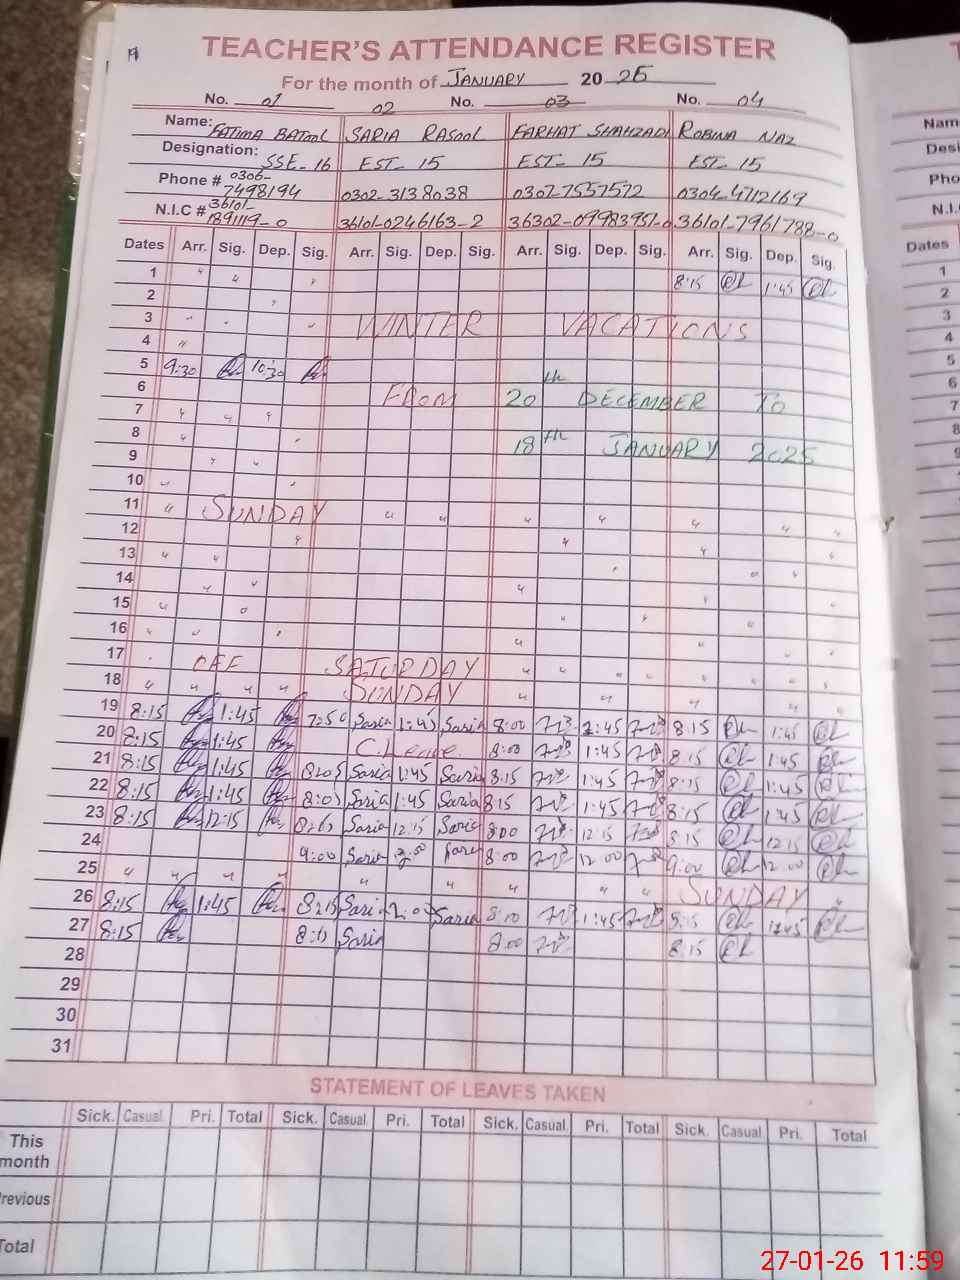 TEACHER'S ATTENDANCE REGISTER
For the month of JANUARY 20 26
No. 01 02 No. 03 No. 04
Name: FATIMA BATOOL SARIA RASOOL FARHAT SHAHZADI ROBINA NAZ
Designation: SSE-16 EST-15 EST-15 EST-15
Phone # 0306-7498194 0302-3138038 0307-7557572 0304-4712169
N.I.C # 36101-1891119-0 36101-0246163-2 36302-09983951-0 36101-7961788-0
Dates Arr. Sig. Dep. Sig. Arr. Sig. Dep. Sig. Arr. Sig. Dep. Sig. Arr. Sig. Dep. Sig.
1 8:15 1:45
2
3 WINTER VACATIONS
4
5 9:30 10:30
6 FROM 20th DECEMBER TO
7
8 18th JANUARY 2025
9
10
11 SUNDAY
12
13
14
15
16
17 OFF SATURDAY
18 SUNDAY
19 8:15 1:45 7:50 Saria 1:45 Saria 8:00 2:45 8:15 1:45
20 8:15 1:45 C.Leave 8:00 1:45 8:15 1:45
21 8:15 1:45 8:05 Saria 1:45 Saria 8:15 1:45 8:15 1:45
22 8:15 1:45 8:05 Saria 1:45 Saria 8:15 1:45 8:15 1:45
23 8:15 12:15 Saria 12:15 Saria 8:00 12:15 8:15 12:15
24 9:00 Saria Saria 8:00 12:00 9:00 12:00
25 SUNDAY
26 8:15 1:45 8:15 Saria 2:00 Saria 8:10 1:45 8:15
27 8:15 Saria 8:00 8:15
28
29
30
31
STATEMENT OF LEAVES TAKEN
Sick. Casual. Pri. Total Sick. Casual. Pri. Total Sick. Casual. Pri. Total Sick. Casual Pri. Total
This month
Previous
Total
Nam
Desi
Pho
N.I.
Dates
1
2
3
4
5
6
7
8
9
27-01-26 11:59